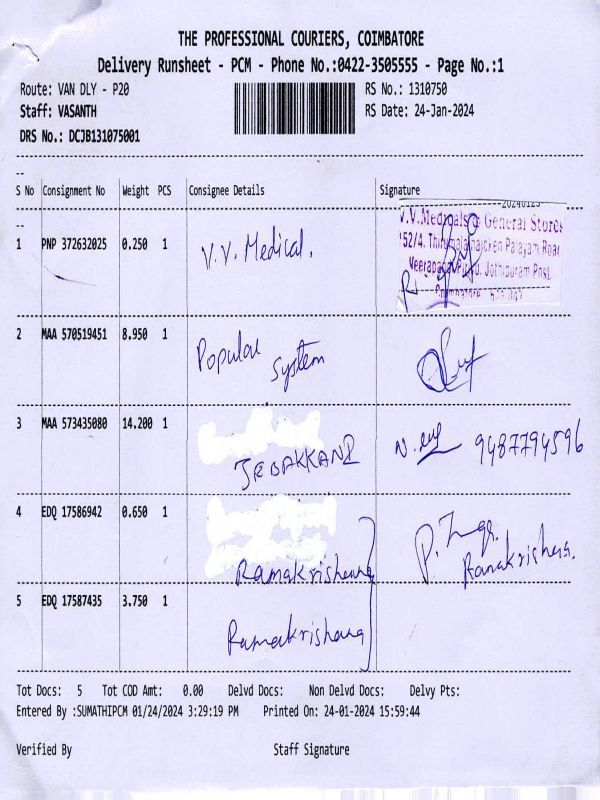 THE PROFESSIONAL COURIERS, COIMBATORE
Delivery Runsheet - PCM - Phone No.:0422-3505555 - Page No.:1
Route: VAN DLY - P20 RS No.: 1310750
Staff: VASANTH RS Date: 24-Jan-2024
DRS No.: DCJB131075001
S No Consignment No Weight PCS Consignee Details Signature
1 PNP 372632025 0.250 1 V.V. Medical.
V.V.Medicals & General Stores
152/4.
2 MAA 570519451 8.950 1 Popular
System
3 MAA 573435080 14.200 1 N. 9487794596
JEBAKKANI
4 EDQ 17586942 0.650 1 P.
Ramakrishana Ramakrishna.
5 EDQ 17587435 3.750 1
Ramakrishana
Tot Docs: 5 Tot COD Amt: 0.00 Delvd Docs: Non Delvd Docs: Delvy Pts:
Entered By :SUMATHIPCM 01/24/2024 3:29:19 PM Printed On: 24-01-2024 15:59:44
Verified By Staff Signature